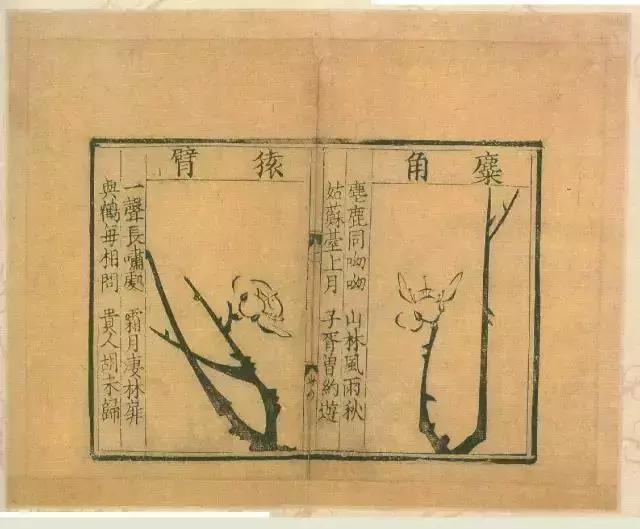 麋角
麀鹿同呦呦　山林風雨秋
姑蘇臺上月　子胥曽約遊
猿臂
一聲長嘯處　霜月凄林扉
與鶴每相問　貴人胡未歸